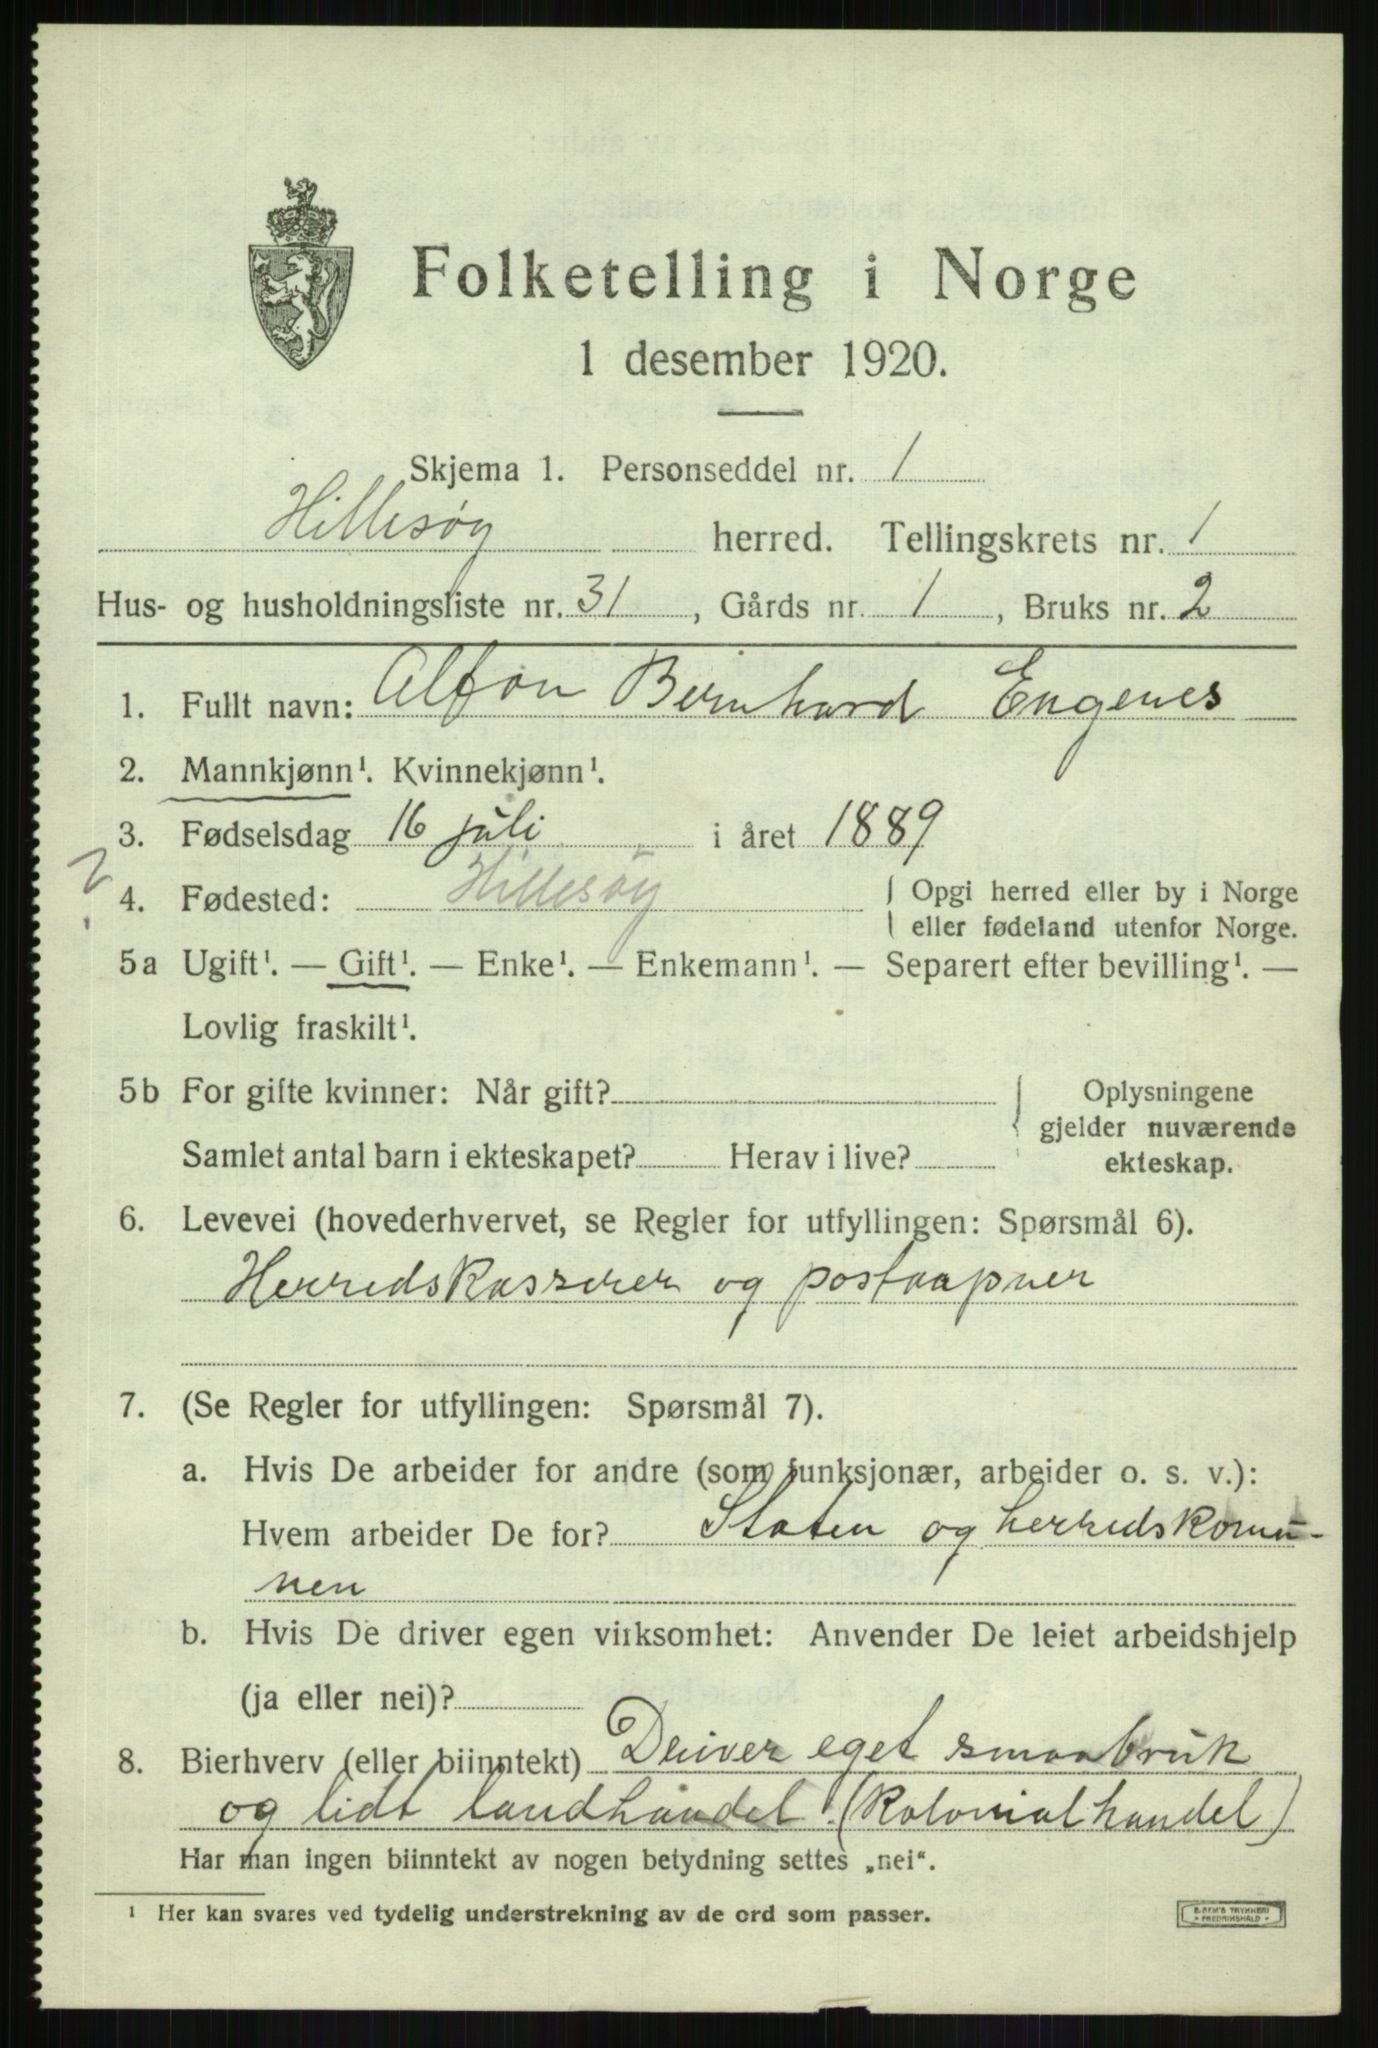 Folketelling i Norge
1 desember 1920.
Skjema 1. Personseddel nr. 1
Hillesøy herred. Tellingskrets nr. 1
Hus- og husholdningsliste nr. 31, Gårds nr. 1, Bruks nr. 2
1. Fullt navn: Alfon Bernhard Engenes
2. Mannkjønn¹. Kvinnekjønn¹.
3. Fødselsdag 16 juli i året 1889
?
4. Fødested: Hillesøy { Opgi herred eller by i Norge
eller fødeland utenfor Norge.
5a Ugift¹. — Gift¹. — Enke¹. — Enkemann¹. — Separert efter bevilling¹. —
Lovlig fraskilt¹.
5b For gifte kvinner: Når gift? { Oplysningene
gjelder nuværende
Samlet antal barn i ekteskapet? Herav i live? ekteskap.
6. Levevei (hovederhvervet, se Regler for utfyllingen: Spørsmål 6).
Herredskasserer og postaapner
7. (Se Regler for utfyllingen: Spørsmål 7).
a. Hvis De arbeider for andre (som funksjonær, arbeider o. s. v.):
Hvem arbeider De for? Staten og herredskomu-
nen
b. Hvis De driver egen virksomhet: Anvender De leiet arbeidshjelp
(ja eller nei)?
8. Bierhverv (eller biinntekt) Driver eget smaabruk
og lidt landhandel. (Kolonialhandel)
Har man ingen biinntekt av nogen betydning settes „nei“.
¹ Her kan svares ved tydelig understrekning av de ord som passer.